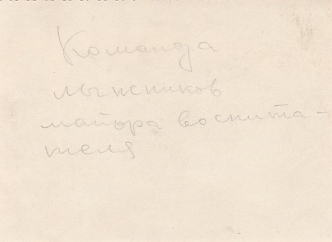 Команда
лыжников
майора воспита-
теля